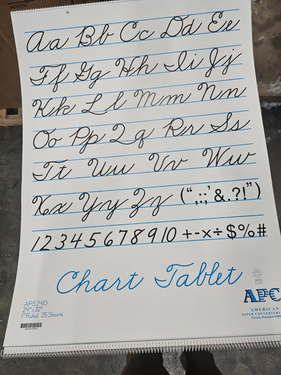 Aa Bb Cc Dd Ee
Ff Gg Hh Ii Jj
Kk Ll Mm Nn
Oo Pp Qq Rr Ss
Tt Uu Vv Ww
Xx Yy Zz (“,;:’&.?!”)
12345678910 +-x÷$%#
Chart Tablet
APC
AMERICAN
PAPER CONVERTERS
25 Sheets